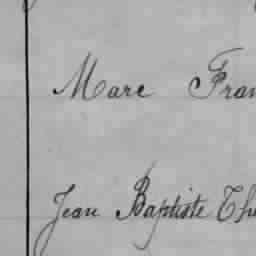 Marc Fran
Jean Baptiste Th